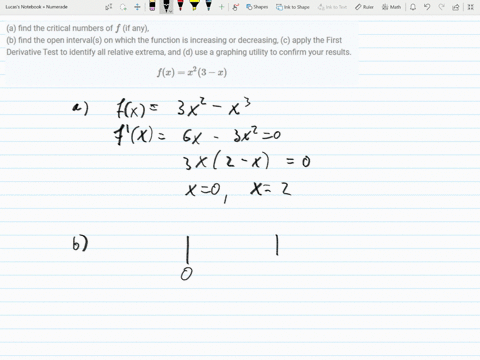 Lucas's Notebook » Numerade
Draw Tools Shapes Insert
Ink to Shape Ink to Math Ruler
(a) find the critical numbers of f (if any),
(b) find the open interval(s) on which the function is increasing or decreasing, (c) apply the First
Derivative Test to identify all relative extrema, and (d) use a graphing utility to confirm your results.
f(x) = x²(3 − x)
a) f(x) = 3x² − x³
f'(x) = 6x − 3x² = 0
3x(2 − x) = 0
x=0, x=2
b)
0